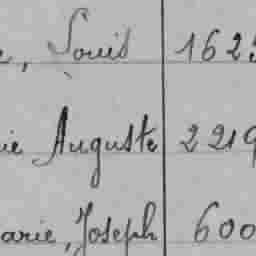 e, Louis 1625
ie Auguste 2219
arie, Joseph 600